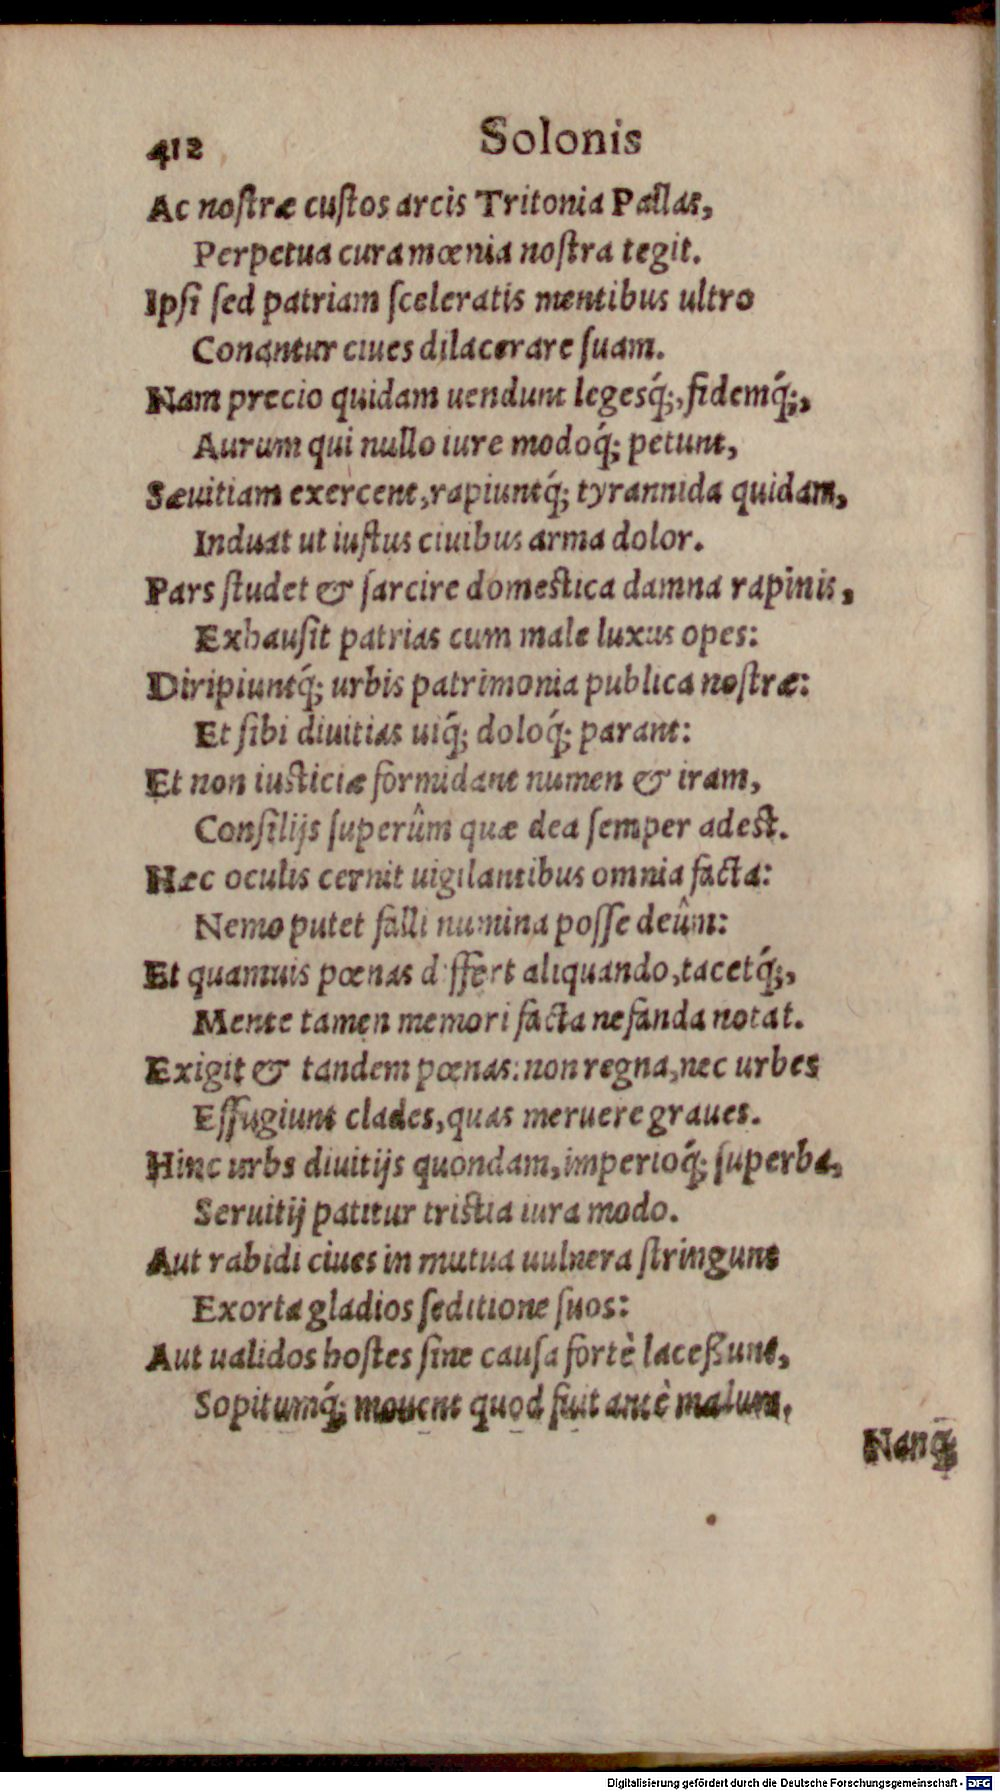 412 Solonis
Ac noſtræ cuſtos arcis Tritonia Pallas,
Perpetua cura mœnia noſtra tegit.
Ipſi ſed patriam ſceleratis mentibus ultro
Conantur ciues dilacerare ſuam.
Nam precio quidam uendunt legesq́;, fidemq́;,
Aurum qui nullo iure modoq́; petunt,
Sæuitiam exercent, rapiuntq́; tyrannida quidam,
Induat ut iuſtus ciuibus arma dolor.
Pars ſtudet & ſarcire domeſtica damna rapinis,
Exhauſit patrias cum male luxus opes:
Diripiuntq́; urbis patrimonia publica noſtræ:
Et ſibi diuitias uiq́; doloq́; parant:
Et non iuſticiæ formidant numen & iram,
Conſilijs ſuperûm quæ dea ſemper adeſt.
Hæc oculis cernit uigilantibus omnia facta:
Nemo putet falli numina poſſe deûm:
Et quamuis pœnas differt aliquando, tacetq́;,
Mente tamen memori facta nefanda notat.
Exigit & tandem pœnas: non regna, nec urbes
Effugiunt clades, quas meruere graues.
Hinc urbs diuitijs quondam, imperioq́; ſuperba,
Seruitij patitur triſtia iura modo.
Aut rabidi ciues in mutua uulnera ſtringunt
Exorta gladios ſeditione ſuos:
Aut ualidos hoſtes ſine cauſa fortè laceßunt,
Sopitumq́; mouent quod fuit antè malum,
Nanq́;
Digitalisierung gefördert durch die Deutsche Forschungsgemeinschaft - DFG